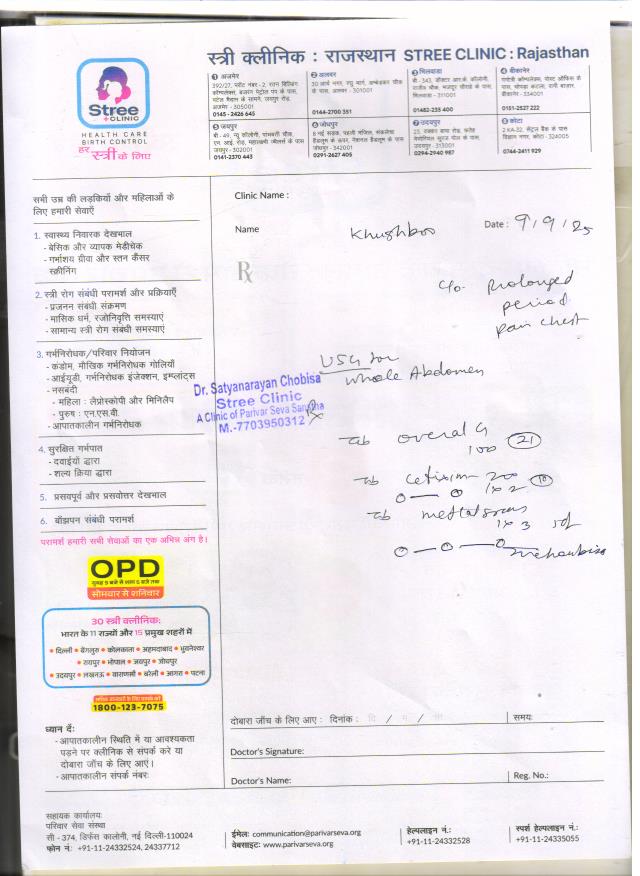 स्त्री क्लीनिक : राजस्थान STREE CLINIC : Rajasthan
Stree
CLINIC
HEALTH CARE
BIRTH CONTROL
हर
स्त्री के लिए
1 अजमेर
392/27, प्लॉट नंबर - 2, रतन बिल्डिंग
कॉम्पलेक्स, बजरंग पेट्रोल पंप के पास,
पटेल मैदान के सामने, जयपुर रोड,
अजमेर - 305001
0145 - 2426 645
2 अलवर
30 आर्य नगर, रघु मार्ग, अम्बेडकर चौक
के पास, अलवर - 301001
0144-2700 351
3 भिलवाड़ा
बी - 343, डॉक्टर आर.के. कॉलोनी,
भिलवाड़ा - 311001
01482-235 400
4 बीकानेर
बीकानेर - 334001
0151-2527 222
5 जयपुर
जयपुर - 302001
0141-2370 443
6 जोधपुर
8 नई सड़क, पहली मंजिल,
जोधपुर - 342001
0291-2627 405
7 उदयपुर
उदयपुर - 313001
0294-2940 987
8 कोटा
2 KA-32, सेंट्रल बैंक के पास
विज्ञान नगर, कोटा - 324005
0744-2411 929
सभी उम्र की लड़कियों और महिलाओं के
लिए हमारी सेवाएँ
1. स्वास्थ्य निवारक देखभाल
- बेसिक और व्यापक मेडीचेक
- गर्भाशय ग्रीवा और स्तन कैंसर
स्क्रीनिंग
2. स्त्री रोग संबंधी परामर्श और प्रक्रियाएँ
- प्रजनन संबंधी संक्रमण
- मासिक धर्म, रजोनिवृति समस्याएं
- सामान्य स्त्री रोग संबंधी समस्याएं
3. गर्भनिरोधक/परिवार नियोजन
- कंडोम, मौखिक गर्भनिरोधक गोलियाँ
- आईयूडी, गर्भनिरोधक इंजेक्शन, इम्प्लांट्स
- नसबंदी
- महिला : लैप्रोस्कोपी और मिनिलैप
- पुरुष : एन.एस.वी.
- आपातकालीन गर्भनिरोधक
4. सुरक्षित गर्भपात
- दवाईयों द्वारा
- शल्य क्रिया द्वारा
5. प्रसवपूर्व और प्रसवोत्तर देखभाल
6. बाँझपन संबंधी परामर्श
परामर्श हमारी सभी सेवाओं का एक अभिन्न अंग है।
OPD
सुबह 9 बजे से शाम 5 बजे तक
सोमवार से शनिवार
30 स्त्री क्लीनिक:
भारत के 11 राज्यों और 15 प्रमुख शहरों में
• दिल्ली • बेंगलुरु • कोलकाता • अहमदाबाद • भुवनेश्वर
• रायपुर • भोपाल • जयपुर • जोधपुर
• उदयपुर • लखनऊ • वाराणसी • बरेली • आगरा • पटना
1800-123-7075
ध्यान दें:
- आपातकालीन स्थिति में या आवश्यकता
पड़ने पर क्लीनिक से संपर्क करे या
दोबारा जाँच के लिए आएं।
- आपातकालीन संपर्क नंबरः
Clinic Name :
Name Khushboo Date : 9/9/25
Rx
C/o Prolonged
period
pain chest
USG for
whole Abdomen
Dr. Satyanarayan Chobisa
Stree Clinic
A Clinic of Parivar Seva Sanstha
M.-7703950312
Rx
Tab overal G
100 21
Tab Cefixim 200 10
0 — 0 1x2
Tab
1x3
0 — 0 — 0
दोबारा जाँच के लिए आए : दिनांक : दि / म / सा समयः
Doctor's Signature:
Doctor's Name: Reg. No.:
सहायक कार्यालयः
परिवार सेवा संस्था
सी - 374, डिफेंस कालोनी, नई दिल्ली-110024
फोन नं: +91-11-24332524, 24337712
ईमेल: communication@parivarseva.org
वेबसाइट: www.parivarseva.org
हेल्पलाइन नं.:
+91-11-24332528
स्पर्श हेल्पलाइन नं.:
+91-11-24335055